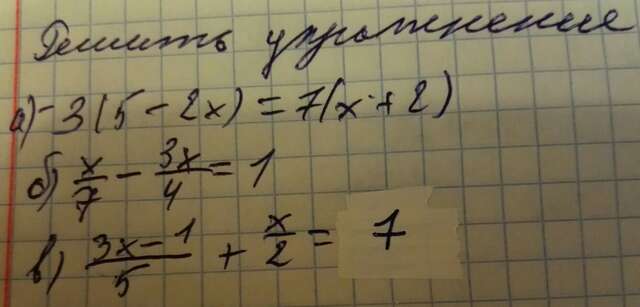 Решить упражнение
а) -3(5 - 2x) = 7(x + 2)
б) x/7 - 3x/4 = 1
в) (3x - 1)/5 + x/2 = 1